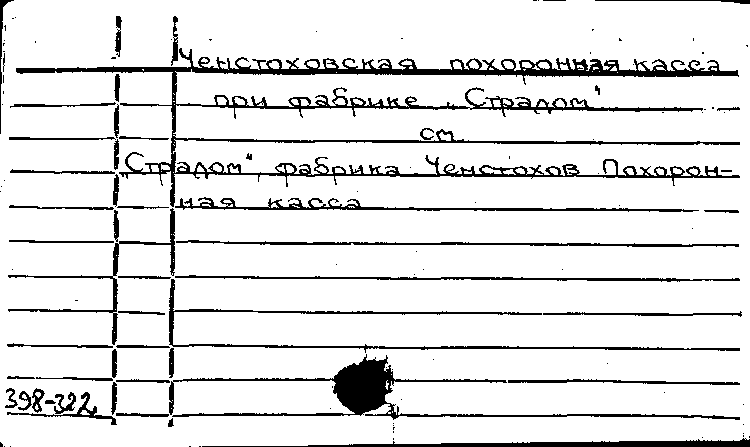 Ченстоховская похоронная касса
при фабрике „Страдом"
см.
„Страдом", фабрика Ченстохов Похорон-
ная касса
398-322